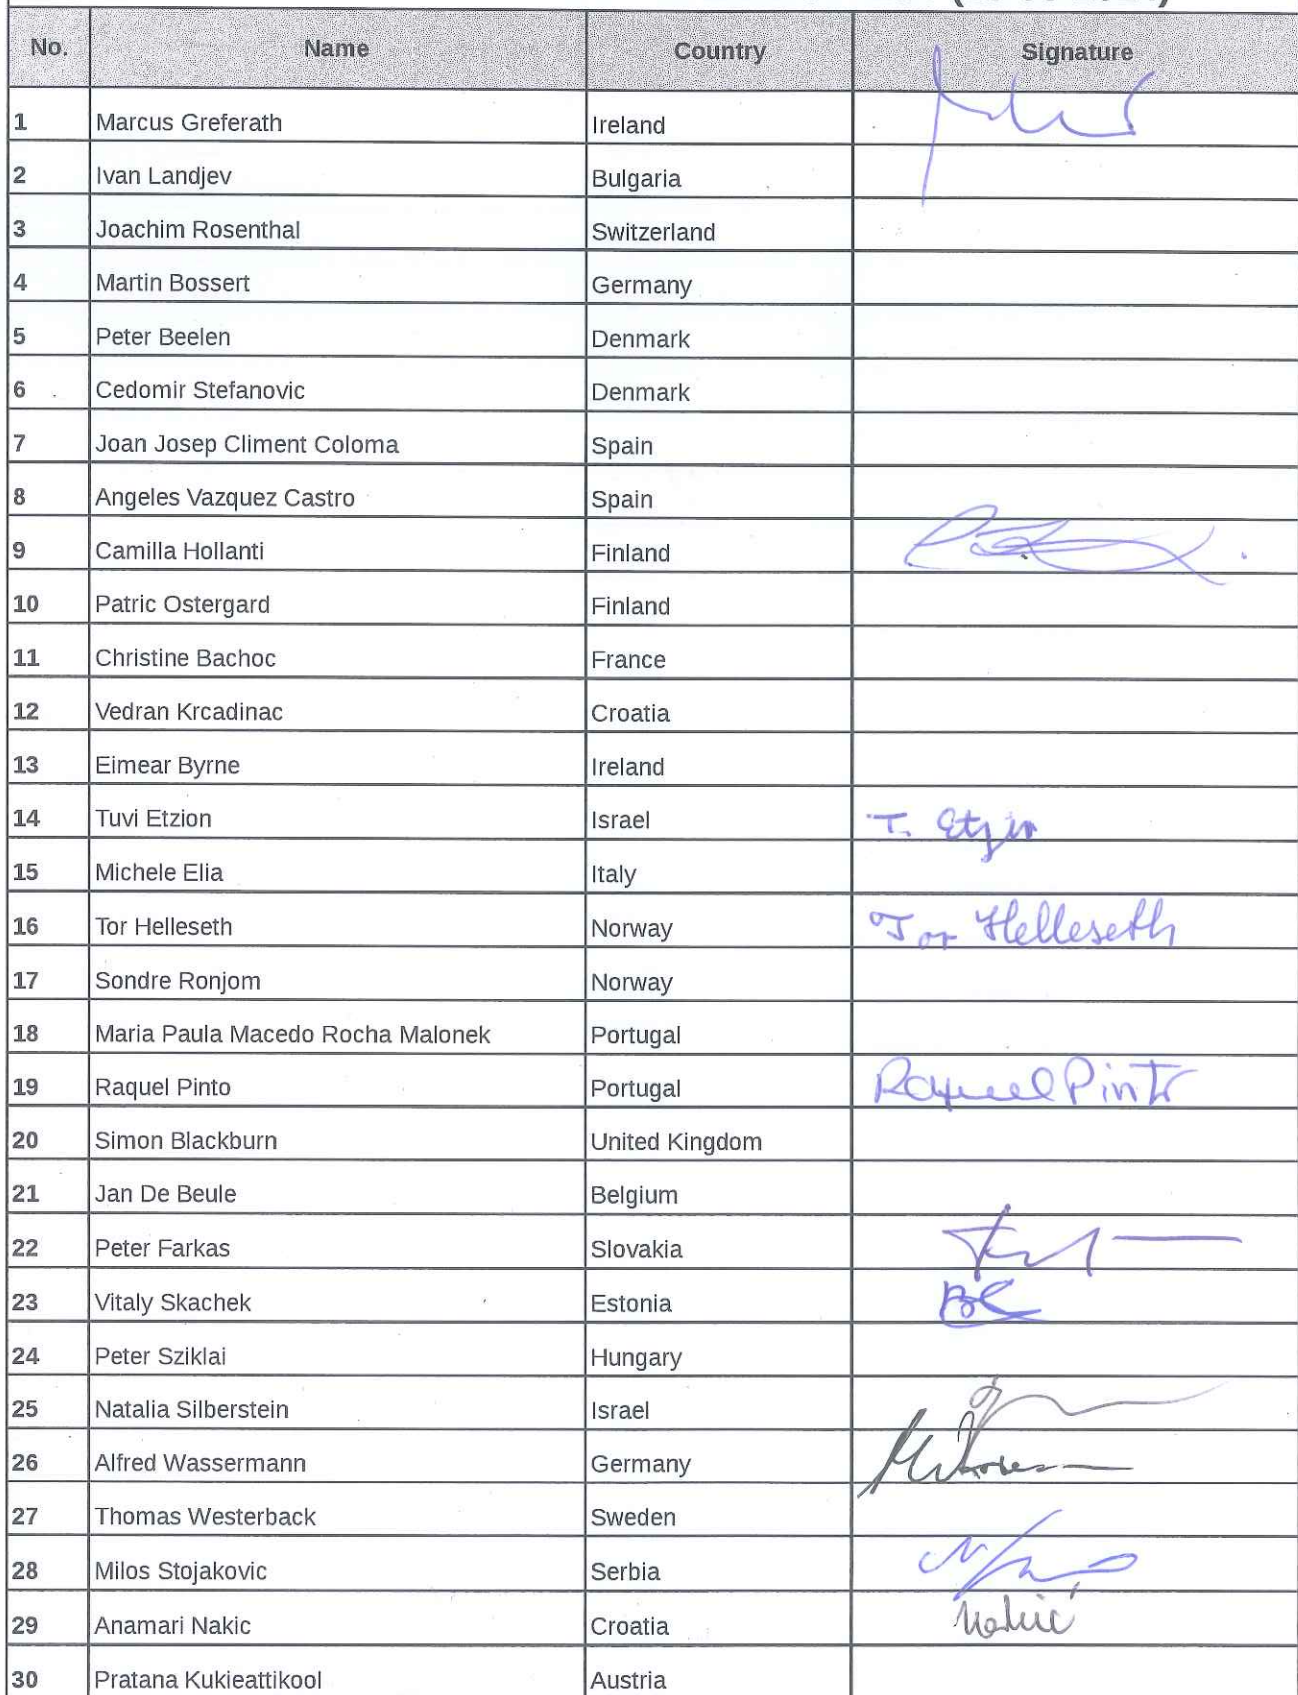 No. Name Country Signature
1 Marcus Greferath Ireland
2 Ivan Landjev Bulgaria
3 Joachim Rosenthal Switzerland
4 Martin Bossert Germany
5 Peter Beelen Denmark
6 Cedomir Stefanovic Denmark
7 Joan Josep Climent Coloma Spain
8 Angeles Vazquez Castro Spain
9 Camilla Hollanti Finland
10 Patric Ostergard Finland
11 Christine Bachoc France
12 Vedran Krcadinac Croatia
13 Eimear Byrne Ireland
14 Tuvi Etzion Israel T. Etzion
15 Michele Elia Italy
16 Tor Helleseth Norway Tor Helleseth
17 Sondre Ronjom Norway
18 Maria Paula Macedo Rocha Malonek Portugal
19 Raquel Pinto Portugal Raquel Pinto
20 Simon Blackburn United Kingdom
21 Jan De Beule Belgium
22 Peter Farkas Slovakia
23 Vitaly Skachek Estonia
24 Peter Sziklai Hungary
25 Natalia Silberstein Israel
26 Alfred Wassermann Germany
27 Thomas Westerback Sweden
28 Milos Stojakovic Serbia
29 Anamari Nakic Croatia Nakić
30 Pratana Kukieattikool Austria